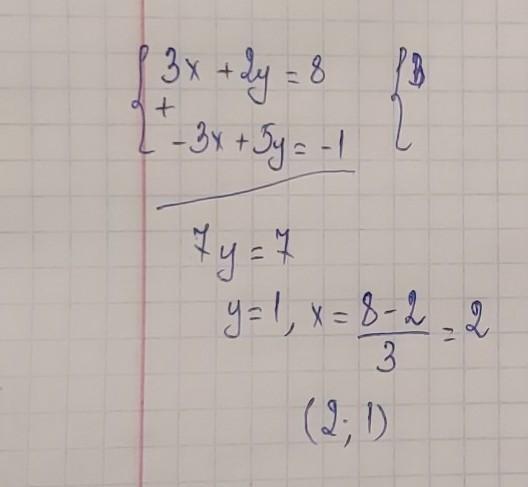 3x + 2y = 8
+
-3x + 5y = -1
7y = 7
y = 1, x = (8 - 2)/3 = 2
(2; 1)